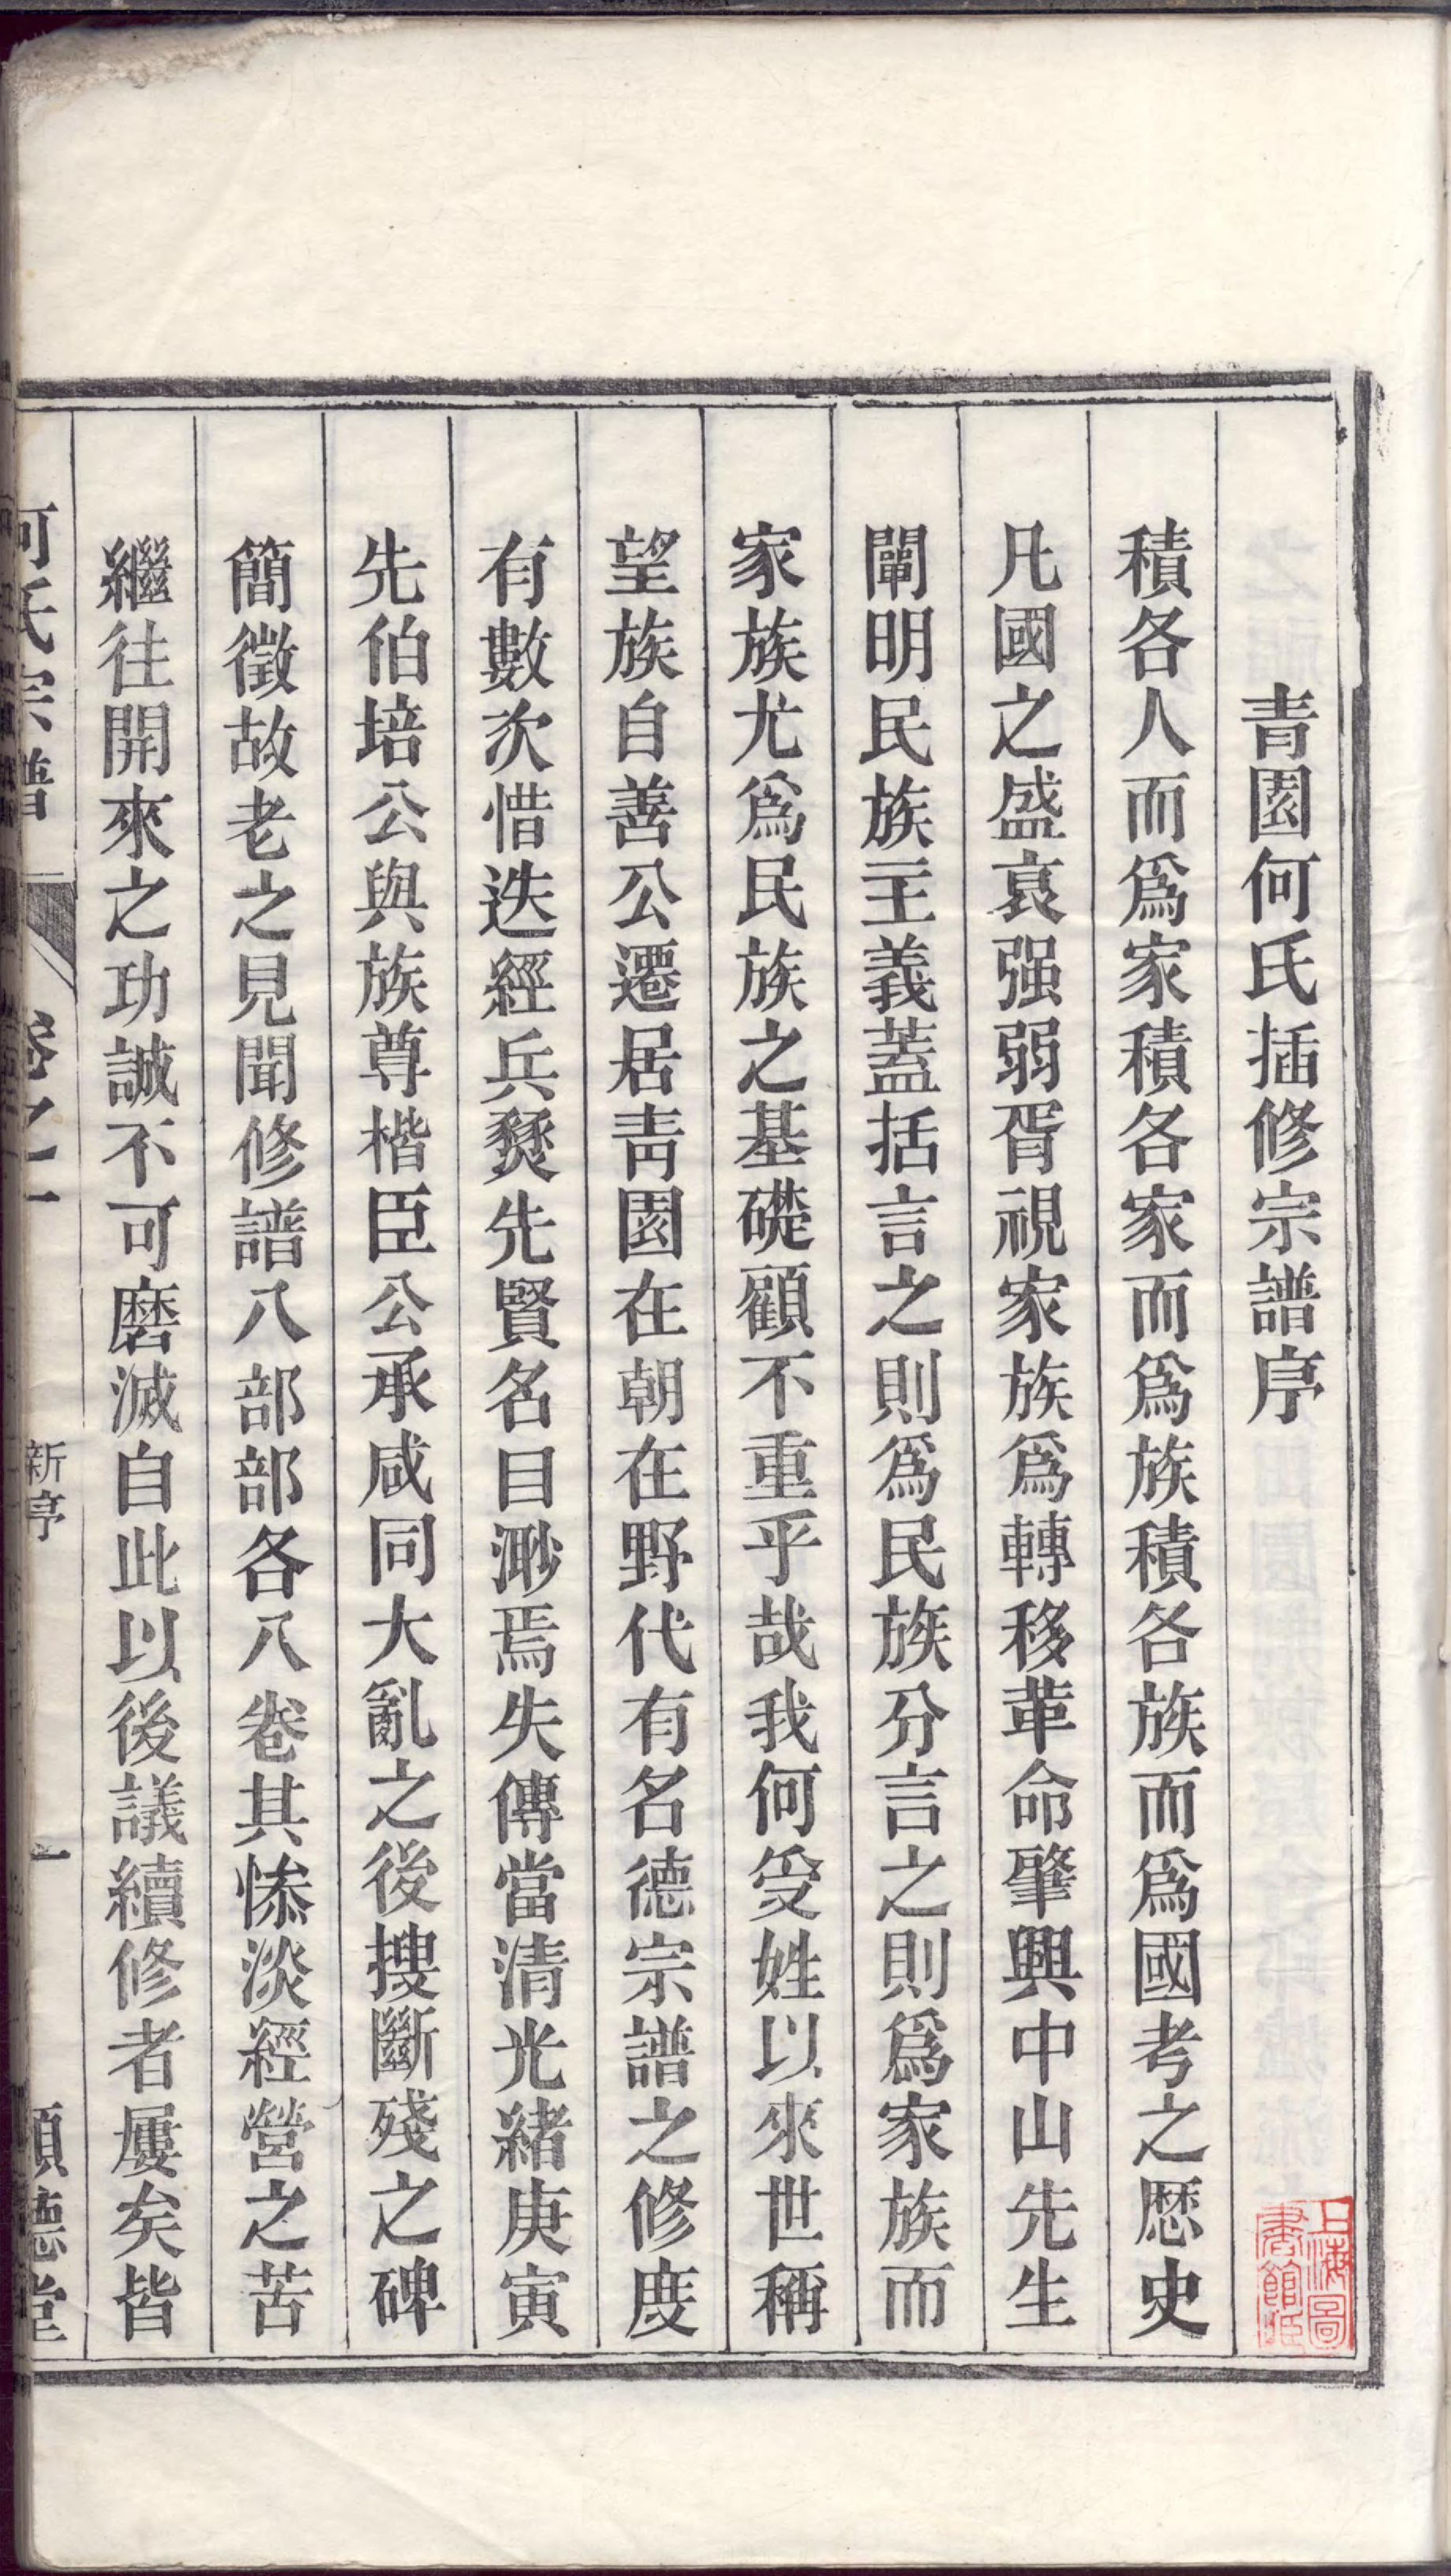 青園何氏插修宗譜序
積各人而爲家積各家而爲族積各族而爲國考之歷史
凡國之盛衰强弱胥視家族爲轉移革命肇興中山先生
闡明民族主義蓋括言之則爲民族分言之則爲家族而
家族尤爲民族之基礎顧不重乎哉我何受姓以來世稱
望族自善公遷居靑園在朝在野代有名德宗譜之修度
有數次惜迭經兵燹先賢名目渺焉失傳當清光緒庚寅
先伯培公與族尊楷臣公承咸同大亂之後搜斷殘之碑
簡徵故老之見聞修譜八部部各八卷其慘淡經營之苦
繼往開來之功誠不可磨滅自此以後議續修者屢矣皆
何氏宗譜 卷之一 新序 一 順德堂
上海圖書館藏